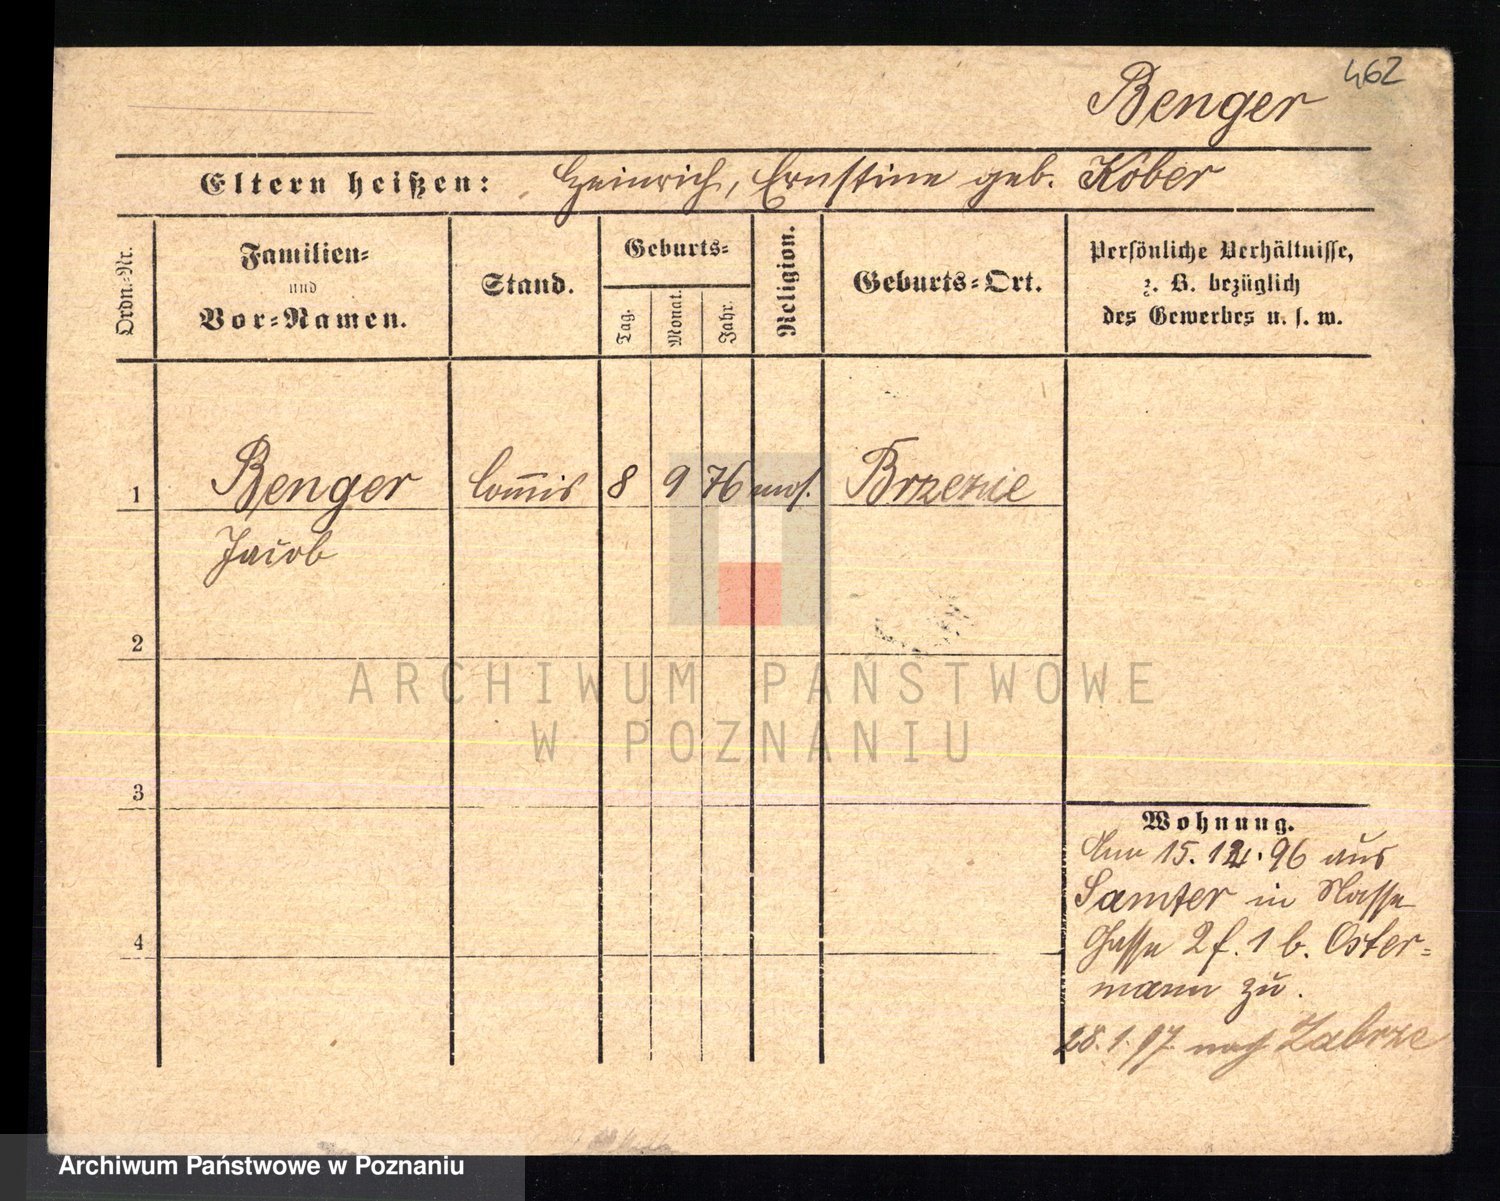 462
Benger
Eltern heißen: Heinrich, Ernstine geb. Kober
Ordn.-Nr.
Familien-
und
Vor-Namen.
Stand.
Geburts-
Tag.
Monat.
Jahr.
Religion.
Geburts-Ort.
Persönliche Verhältnisse,
z. B. bezüglich
des Gewerbes u. s. w.
1 Benger Commis 8 9 76 mos. Brzezie
Jacob
2
3
4
Wohnung.
15. 12. 96 aus
Samter in Nasse
Gasse 2 f. 1 b. Oster-
mann zu.
28. 1. 97 nach Zabrze
ARCHIWUM PAŃSTWOWE
W POZNANIU
Archiwum Państwowe w Poznaniu